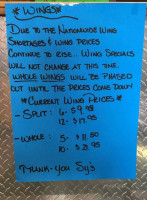 * WINGS!!! *
DUE TO THE NATIONWIDE WING
SHORTAGES & WING PRICES
CONTINUE TO RISE... WING SPECIALS
WILL NOT CHANGE AT THIS TIME.
WHOLE WINGS WILL BE PHASED
OUT UNTIL THE PRICES COME DOWN!
*CURRENT WING PRICES*
- SPLIT: 6- $9.95
12- $17.95
- WHOLE: 5- $11.50
10- $21.95
THANK-YOU SY'S